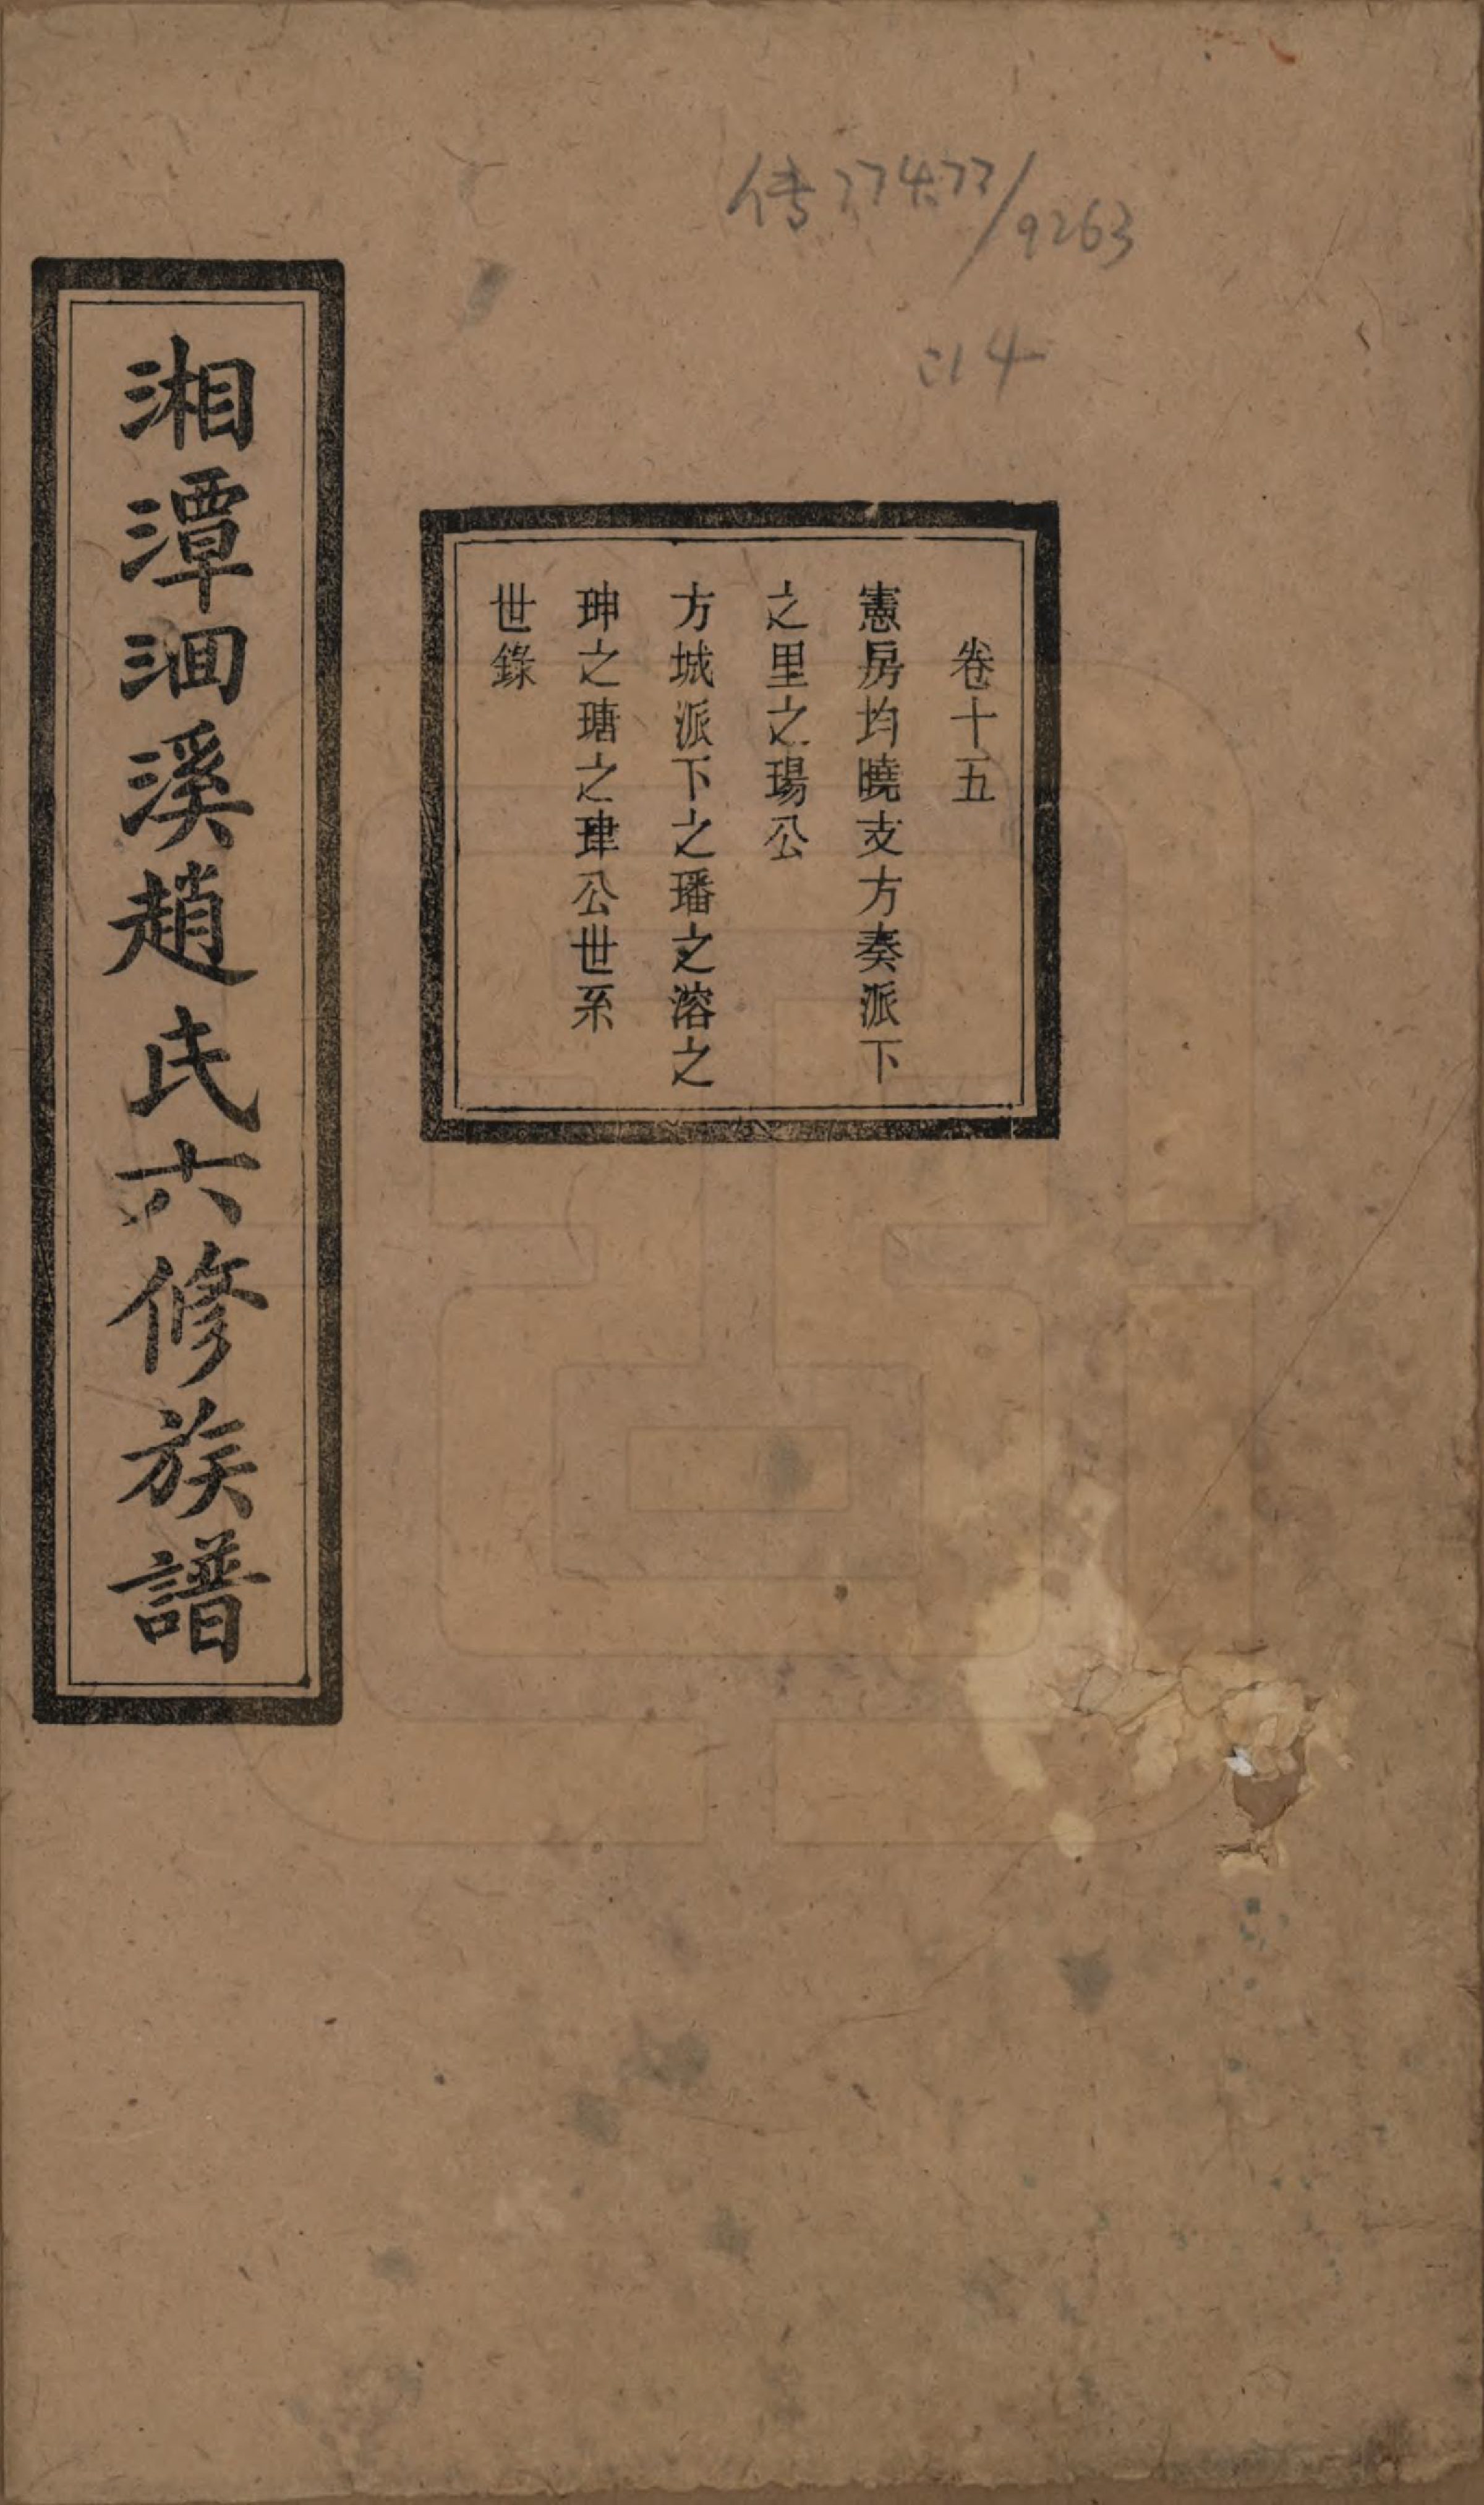 传77477/9263
:14
卷十五
憲房均曉支方奏派下
之里之瑒公
方城派下之璠之溶之
珅之瑭之珒公世系
世錄
湘潭泗溪趙氏六修族譜